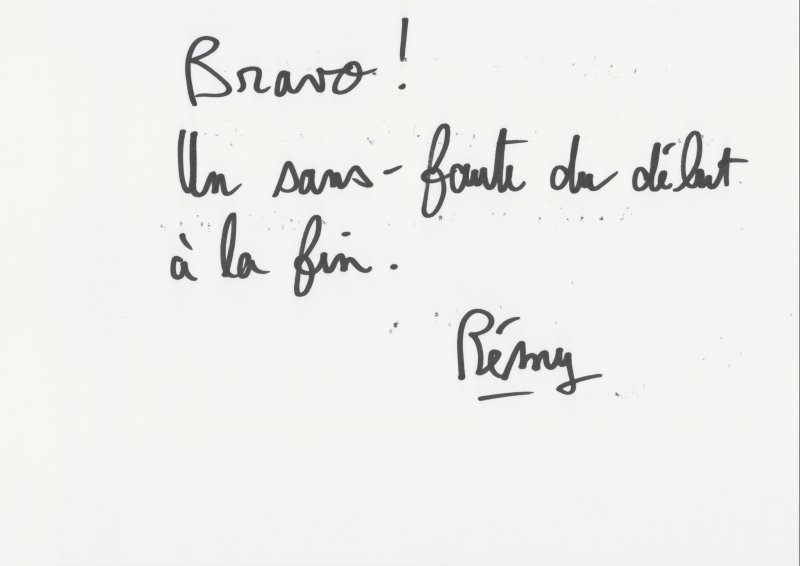 Bravo !
Un sans-faute du début
à la fin.
Rémy